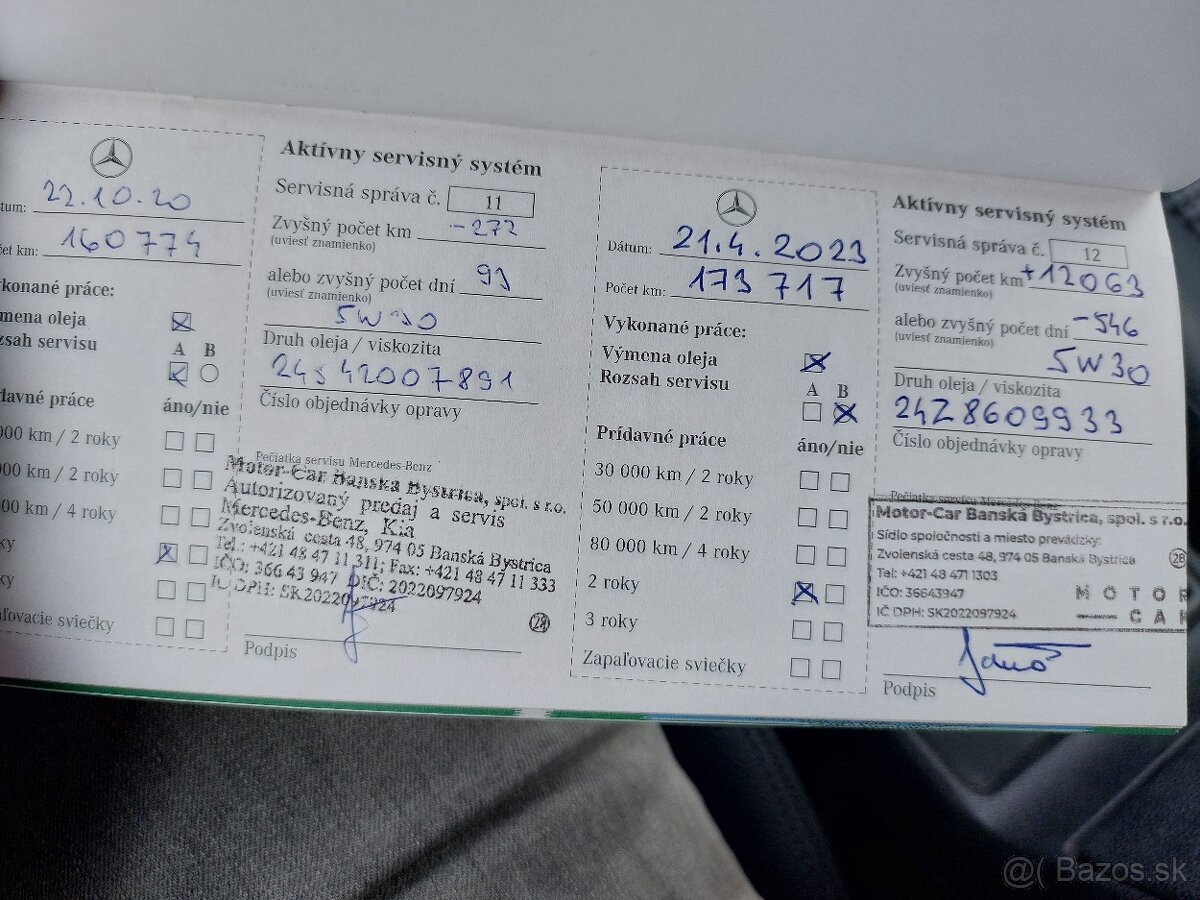 tum: 22.10.20
et km: 160774
konané práce:
mena oleja
zsah servisu
A B
davné práce áno/nie
000 km / 2 roky
00 km / 2 roky
00 km / 4 roky
ky
ky
ľovacie sviečky
Aktívny servisný systém
Servisná správa č. 11
Zvyšný počet km -272
(uviesť znamienko)
alebo zvyšný počet dní 93
(uviesť znamienko)
5W30
Druh oleja / viskozita
24S 42007891
Číslo objednávky opravy
Pečiatka servisu Mercedes-Benz
Motor-Car Banská Bystrica, spol. s r.o.
Autorizovaný predaj a servis
Mercedes-Benz, Kia
Zvolenská cesta 48, 974 05 Banská Bystrica
Tel.: +421 48 47 11 311; Fax: +421 48 47 11 333
IČO: 366 43 947 DIČ: 2022097924
IČ DPH: SK2022097924
28
Podpis
Dátum: 21.4.2023
Počet km: 173 717
Vykonané práce:
Výmena oleja
Rozsah servisu
A B
Prídavné práce áno/nie
30 000 km / 2 roky
50 000 km / 2 roky
80 000 km / 4 roky
2 roky
3 roky
Zapaľovacie sviečky
Aktívny servisný systém
Servisná správa č. 12
Zvyšný počet km +12063
(uviesť znamienko)
alebo zvyšný počet dní -546
(uviesť znamienko)
5W30
Druh oleja / viskozita
24Z8609933
Číslo objednávky opravy
Pečiatka servisu Mercedes-Benz
Motor-Car Banská Bystrica, spol. s r.o.
Sídlo spoločnosti a miesto prevádzky:
Zvolenská cesta 48, 974 05 Banská Bystrica
28
Tel: +421 48 471 1303
IČO: 36643947
IČ DPH: SK2022097924
MOTOR
CAR
Podpis
@( Bazos.sk